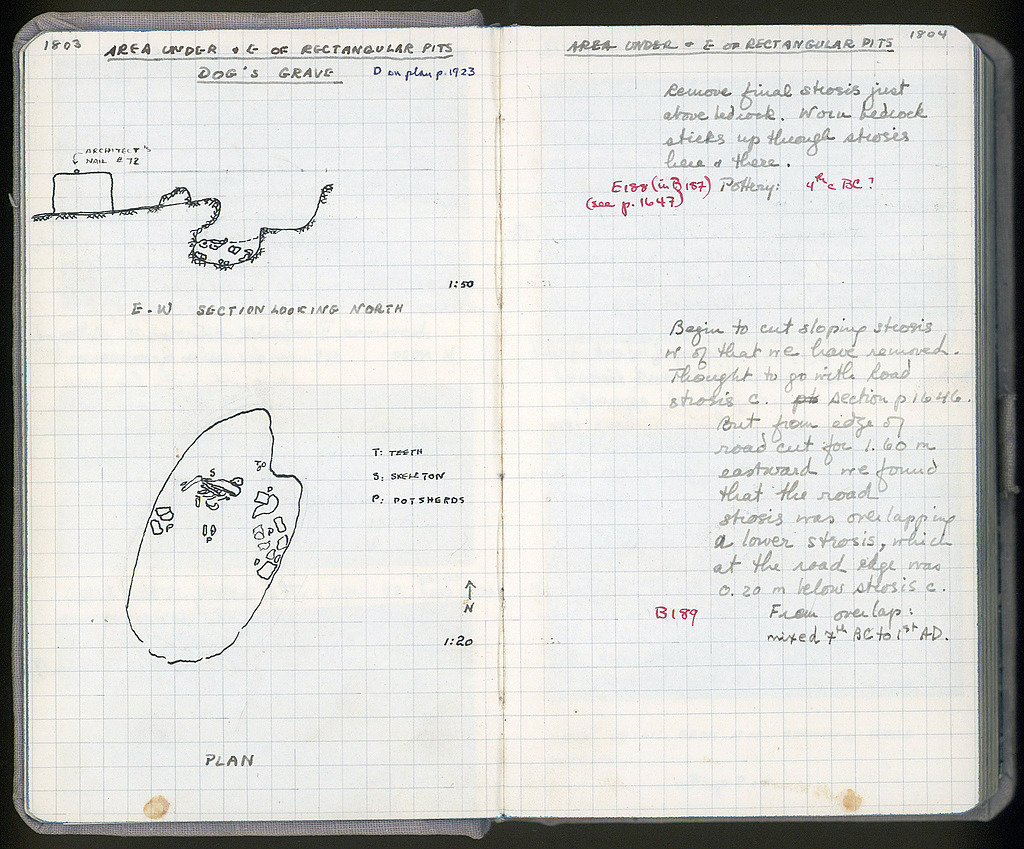 1803
AREA UNDER + E OF RECTANGULAR PITS
DOG'S GRAVE
D on plan p. 1923
ARCHITECT'S
NAIL # 72
1:50
E-W SECTION LOOKING NORTH
T: TEETH
S: SKELETON
P: POTSHERDS
S
T
P
P
P
P
↑
N
1:20
PLAN
1804
AREA UNDER + E OF RECTANGULAR PITS
Remove final strosis just
above bedrock. Worn bedrock
sticks up through strosis
here & there.
(in B 187) Pottery: 4th c BC?
(see p. 1647)
Begin to cut sloping strosis
W of that we have removed.
Thought to go with Road
strosis c. section p 1646.
But from edge of
road cut for 1.60 m
eastward we found
that the road
strosis was overlapping
a lower strosis, which
at the road edge was
0.20 m below strosis c.
B189 From overlap:
mixed 7th BC to 1st AD.